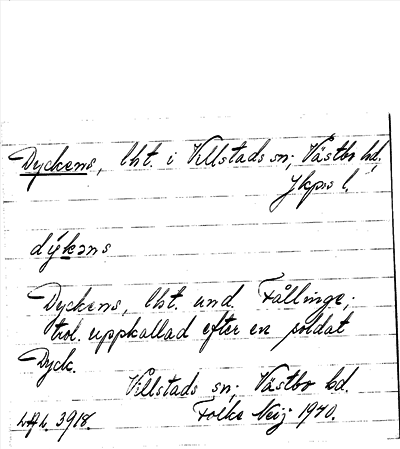 Dyckens, lht. i Villstads sn; Västbo hd.
Jkpgs l.
dýkəns
Dyckens, lht. und. Fållinge;
trol. uppkallad efter en soldat
Dyck.
Villstads sn; Västbo hd.
LAL. 3918. Folke Neij 1940.